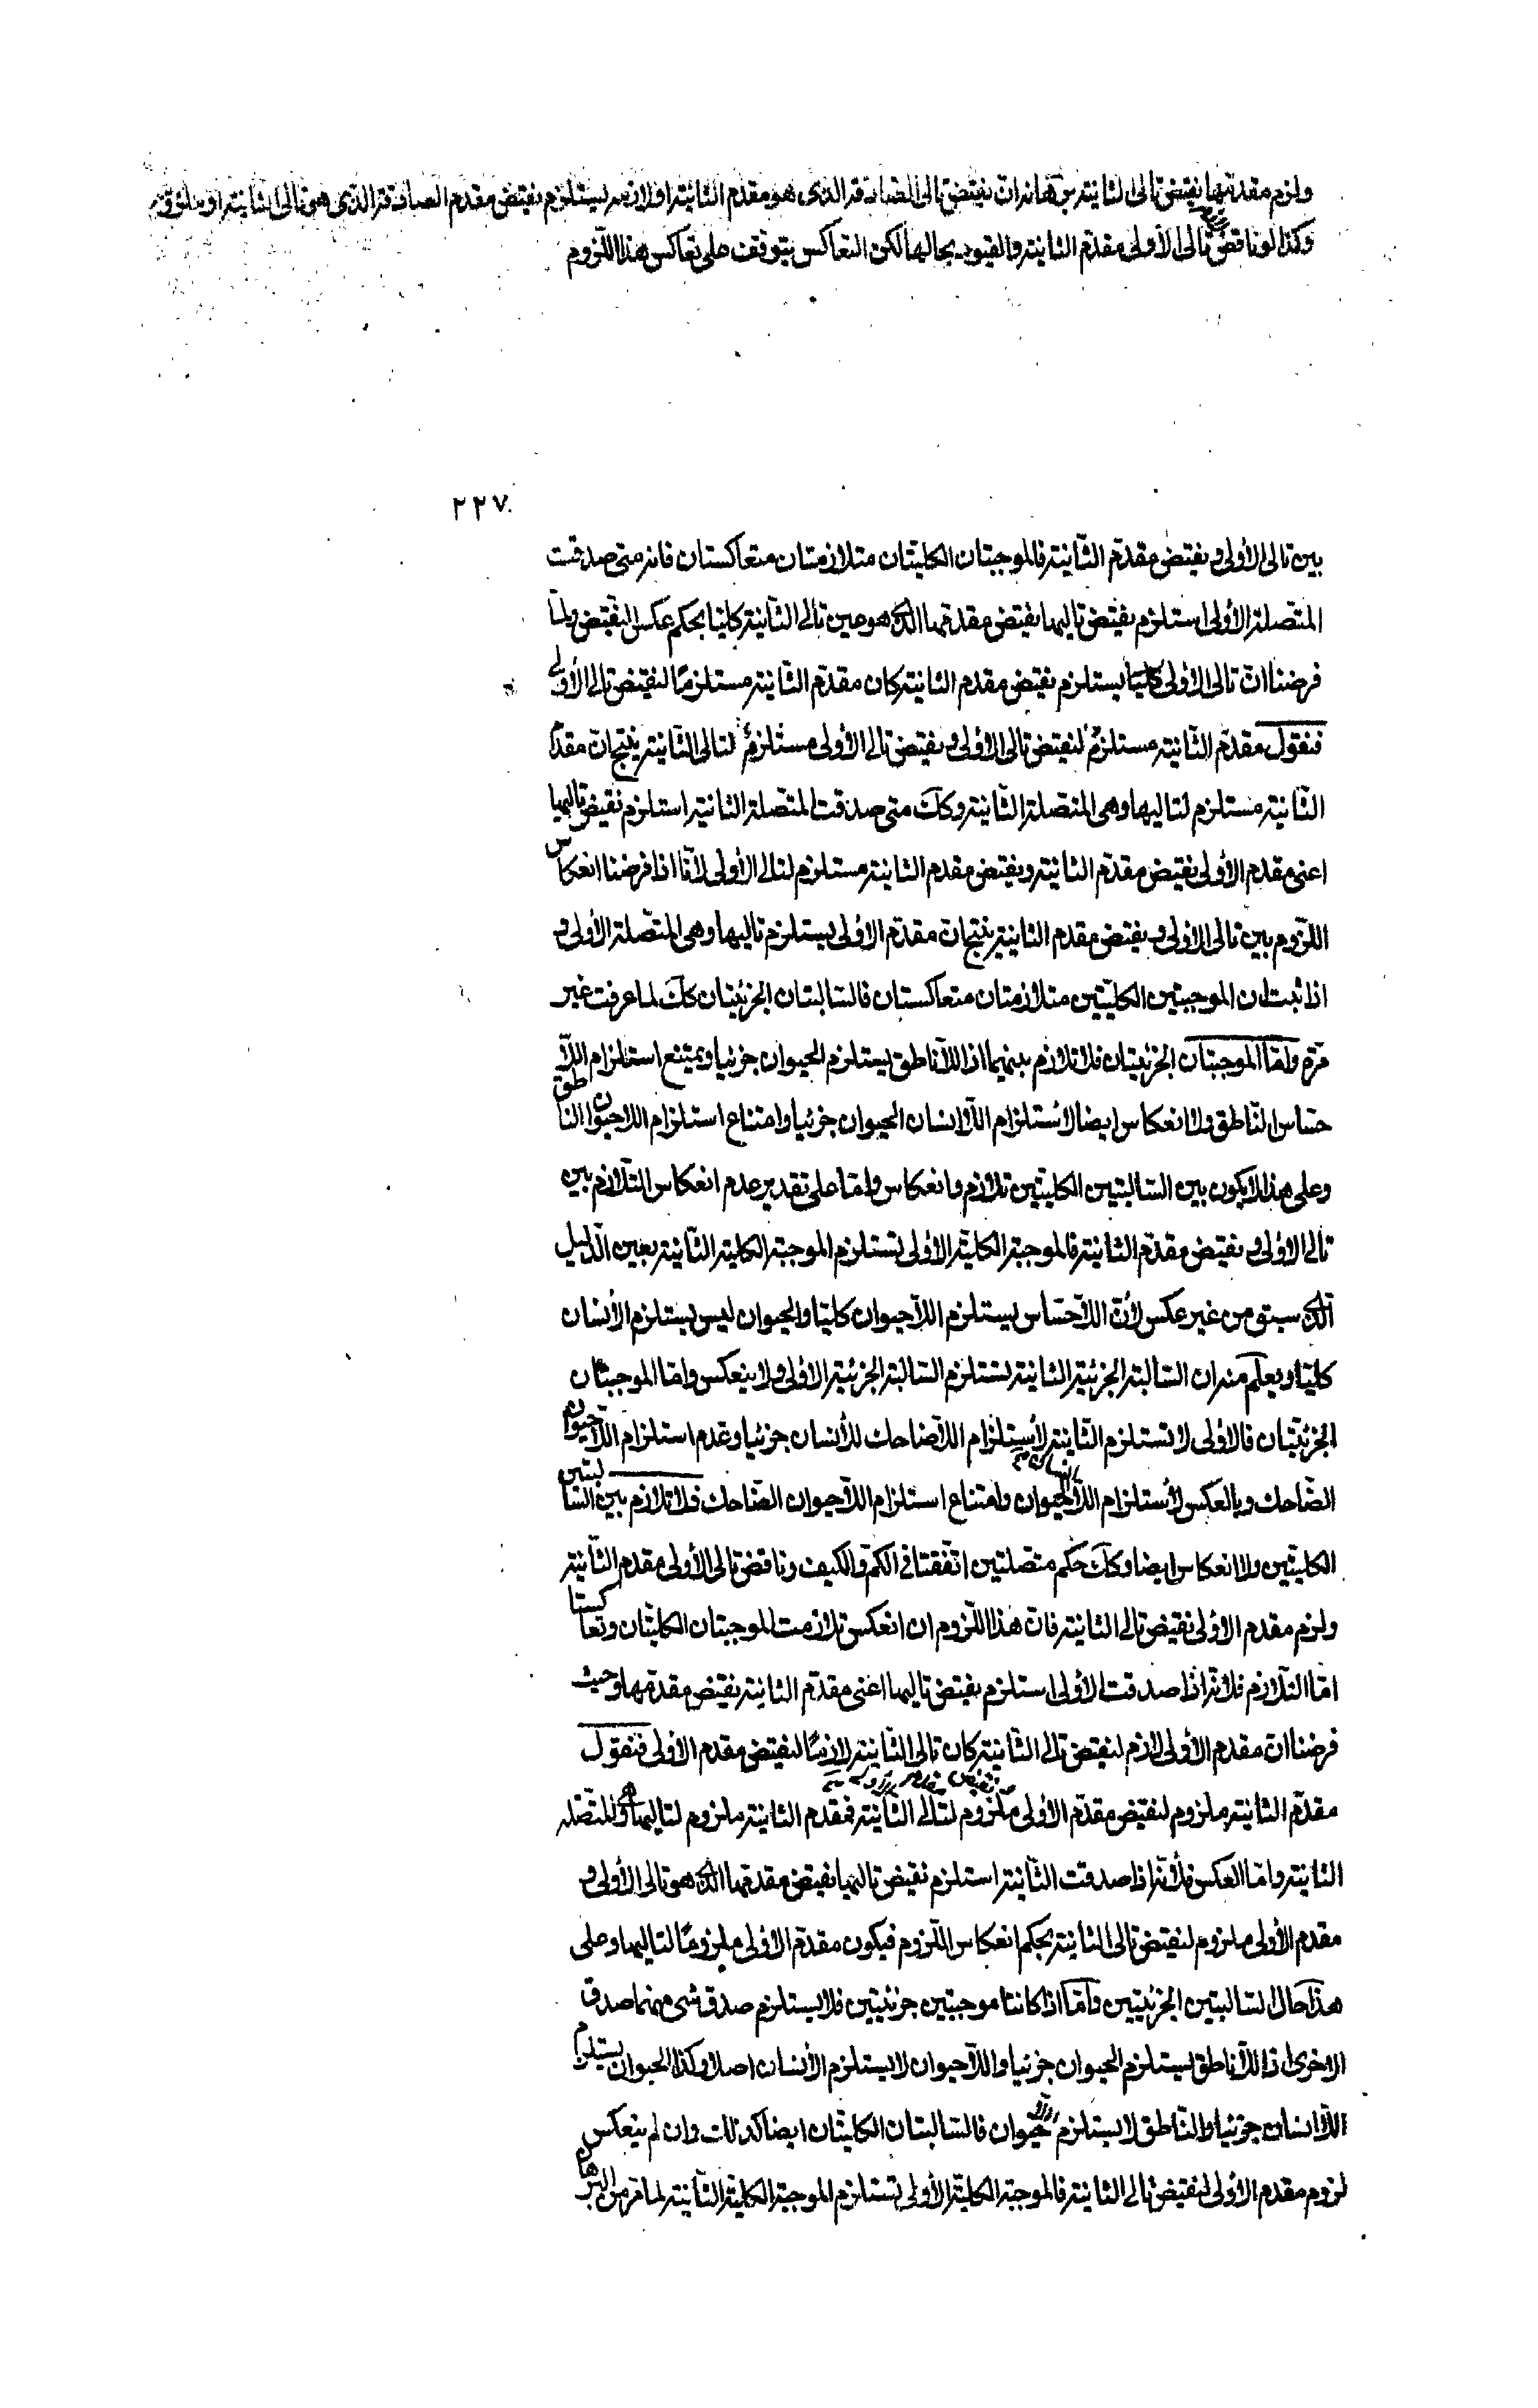 ولزم مقدمها نقيض تالى الثانية برهانه ان نقيض تالى الصادقة الذى هو مقدم الثانية او لازمه يستلزم نقيض مقدم الصادقة الذى هو تالى الثانية او ملزومه
وكذا لو ناقض تالى الأولى مقدم الثانية والقيود بحالها لكن التعاكس يتوقف على تعاكس هذا اللزوم
٢٢٧
بين تالى الأولى ونقيض مقدم الثانية فالموجبتان الكليتان متلازمتان متعاكستان فانه متى صدقت
المتصلة الأولى استلزم نقيض تاليها نقيض مقدمها الذى هو عين تالى الثانية كليا بحكم عكس النقيض ولما
فرضنا ان تالى الأولى كليا يستلزم نقيض مقدم الثانية كان مقدم الثانية مستلزمًا لنقيض تالى الأولى
فنقول مقدم الثانية مستلزم لنقيض تالى الأولى ونقيض تالى الأولى مستلزم لتالى الثانية ينتج ان مقدم
الثانية مستلزم لتاليها وهى المتصلة الثانية وكك متى صدقت المتصلة الثانية استلزم نقيض تاليها
اعنى مقدم الأولى نقيض مقدم الثانية ونقيض مقدم الثانية مستلزم لتالى الأولى لأنا اذا فرضنا انعكاس
اللزوم بين تالى الأولى ونقيض مقدم الثانية ينتج ان مقدم الأولى يستلزم تاليها وهى المتصلة الأولى و
اذا ثبت ان الموجبتين الكليتين متلازمتان متعاكستان فالسالبتان الجزئيتان كك لما عرفت غير
مرة واما الموجبتان الجزئيتان فلا تلازم بينهما اذ اللاناطق يستلزم الحيوان جزئيا ويمتنع استلزام اللا
حساس الناطق ولا انعكاس ايضا لاستلزام اللاانسان الحيوان جزئيا وامتناع استلزام اللاحيوان الناطق
وعلى هذا لا يكون بين السالبتين الكليتين تلازم وانعكاس واما على تقدير عدم انعكاس التلازم بين
تالى الأولى ونقيض مقدم الثانية فالموجبة الكلية الأولى تستلزم الموجبة الكلية الثانية بعين الدليل
الذى سبق من غير عكس لأن اللاحساس يستلزم اللاحيوان كليا والحيوان ليس يستلزم الأنسان
كليا ويعلم منه ان السالبة الجزئية الثانية تستلزم السالبة الجزئية الأولى ولا ينعكس واما الموجبتان
الجزئيتان فالاولى لا تستلزم الثانية لأستلزام اللاضاحك للأنسان جزئيا وعدم استلزام اللاحيوان
الضاحك وبالعكس لأستلزام اللاحيوان وامتناع استلزام اللاحيوان الضاحك فلا تلازم بين السالبتين
الكليتين ولا انعكاس ايضا وكك حكم متصلتين اتفقتا فى الكم والكيف وناقض تالى الأولى مقدم الثانية
ولزم مقدم الأولى نقيض تالى الثانية فان هذا اللزوم ان انعكس تلازمت الموجبتان الكليتان وتعاكستا
اما التلازم فلأنه اذا صدقت الأولى استلزم نقيض تاليها اعنى مقدم الثانية نقيض مقدمها وحيث
فرضنا ان مقدم الأولى لازم لنقيض تالى الثانية كان تالى الثانية لازمًا لنقيض مقدم الأولى فنقول
مقدم الثانية ملزوم لنقيض مقدم الأولى ونقيض مقدم الأولى ملزوم لتالى الثانية فمقدم الثانية ملزوم لتاليها وهى المتصله
الثانية واما العكس فلأنه اذا صدقت الثانية استلزم نقيض تاليها نقيض مقدمها الذى هو تالى الأولى و
مقدم الأولى ملزوم لنقيض تالى الثانية بحكم انعكاس اللزوم فيكون مقدم الأولى ملزومًا لتاليها وعلى
هذا حال السالبتين الجزئيتين واما اذا كانتا موجبتين جزئيتين فلا يستلزم صدق شى منهما صدق
الاخرى اذ اللاناطق يستلزم الحيوان جزئيا واللاحيوان لا يستلزم الأنسان اصلا وكذا الحيوان يستلزم
اللاانسان جزئيا والناطق لا يستلزم اللاحيوان فالسالبتان الكليتان ايضا كذلك وان لم ينعكس
لزوم مقدم الأولى لنقيض تالى الثانية فالموجبة الكلية الأولى تستلزم الموجبة الكلية الثانية لما مر من البرهان